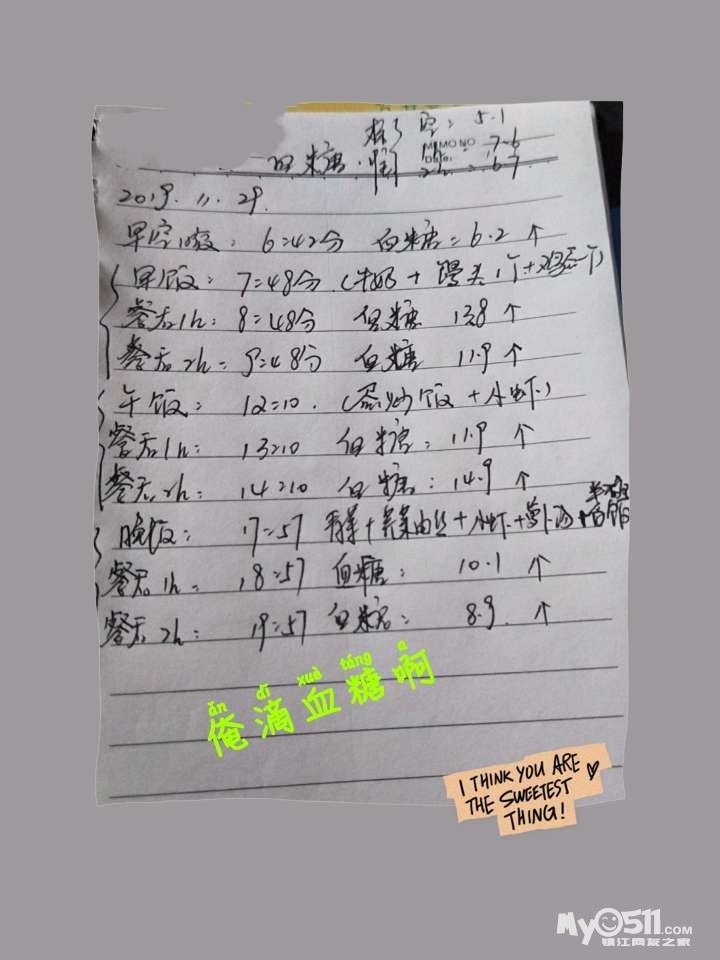 标准 空: 5.1
MEMO NO
血糖 1h: 7-6
Date: 2h: 6.7
2019. 11. 29.
早空腹: 6:42分 血糖: 6.2 ↑
早饭: 7:48分 (牛奶 + 馒头1个+鸡蛋一个)
餐后1h: 8:48分 血糖 13.8 ↑
餐后2h: 9:48分 血糖 11.9 ↑
午饭: 12:10. (蛋炒饭 + 小虾)
餐后1h: 13:10 血糖: 11.9 ↑
餐后2h: 14:10 血糖: 14.9 ↑
晚饭: 17:57 青菜+芹菜肉丝+小虾+萝卜汤+
餐后1h: 18:57 血糖: 10.1 ↑
餐后2h: 19:57 血糖: 8.9. ↑
ǎn dī xuè táng a
俺滴血糖啊
I THINK YOU ARE
THE SWEETEST
THING!
My0511.COM
镇江网友之家